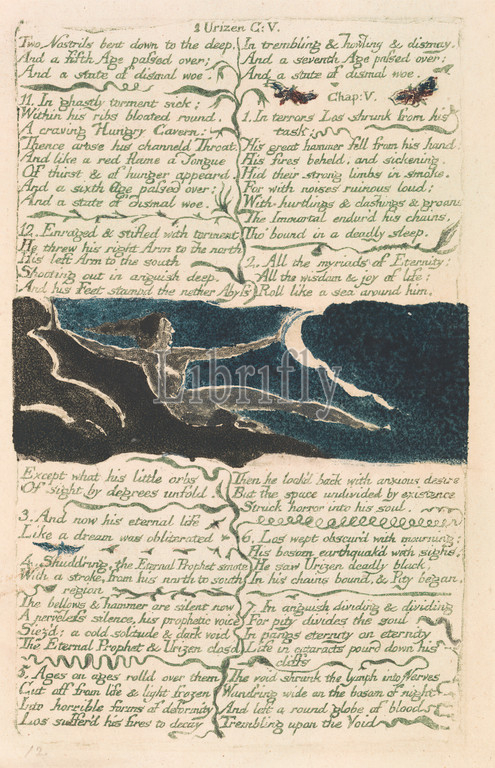 2 Urizen C:V.
Two Nostrils bent down to the deep.
And a fifth Age passed over;
And a state of dismal woe.
11. In ghastly torment sick;
Within his ribs bloated round.
A craving Hungry Cavern:
Thence arose his channeld Throat.
And like a red flame a Tongue
Of thirst & of hunger appeard.
And a sixth Age passed over:
And a state of dismal woe.
12. Enraged & stifled with torment
He threw his right Arm to the north
His left Arm to the south
Shooting out in anguish deep.
And his Feet stampd the nether Abyss
In trembling & howling & dismay.
And a seventh Age passed over:
And a state of dismal woe.
Chap: V.
1. In terrors Los shrunk from his
task:
His great hammer fell from his hand.
His fires beheld, and sickening.
Hid their strong limbs in smoke.
For with noises ruinous loud;
With hurtlings & dashings & groans
The Immortal endur'd his chains.
Tho' bound in a deadly sleep.
2. All the myriads of Eternity:
All the wisdom & joy of life:
Roll like a sea around him.
Librifly
Except what his little orbs
Of sight by degrees unfold.
3. And now his eternal life
Like a dream was obliterated
4. Shudd'ring, the Eternal Prophet smote
With a stroke, from his north to south
region
The bellows & hammer are silent now
A nerveless silence, his prophetic voice
Siez'd; a cold solitude & dark void
The Eternal Prophet & Urizen clos'd
5. Ages on ages rolld over them
Cut off from life & light frozen
Into horrible forms of deformity
Los suffer'd his fires to decay
Then he look'd back with anxious desire
But the space undivided by existence
Struck horror into his soul.
6. Los wept obscur'd with mourning:
His bosom earthquak'd with sighs;
He saw Urizen deadly black,
In his chains bound, & Pity began,
7. In anguish dividing & dividing
For pity divides the soul
In pangs eternity on eternity
Life in cataracts pourd down his
cliffs
The void shrunk the lymph into Nerves
Wand'ring wide on the bosom of night
And left a round globe of blood
Trembling upon the Void
12.